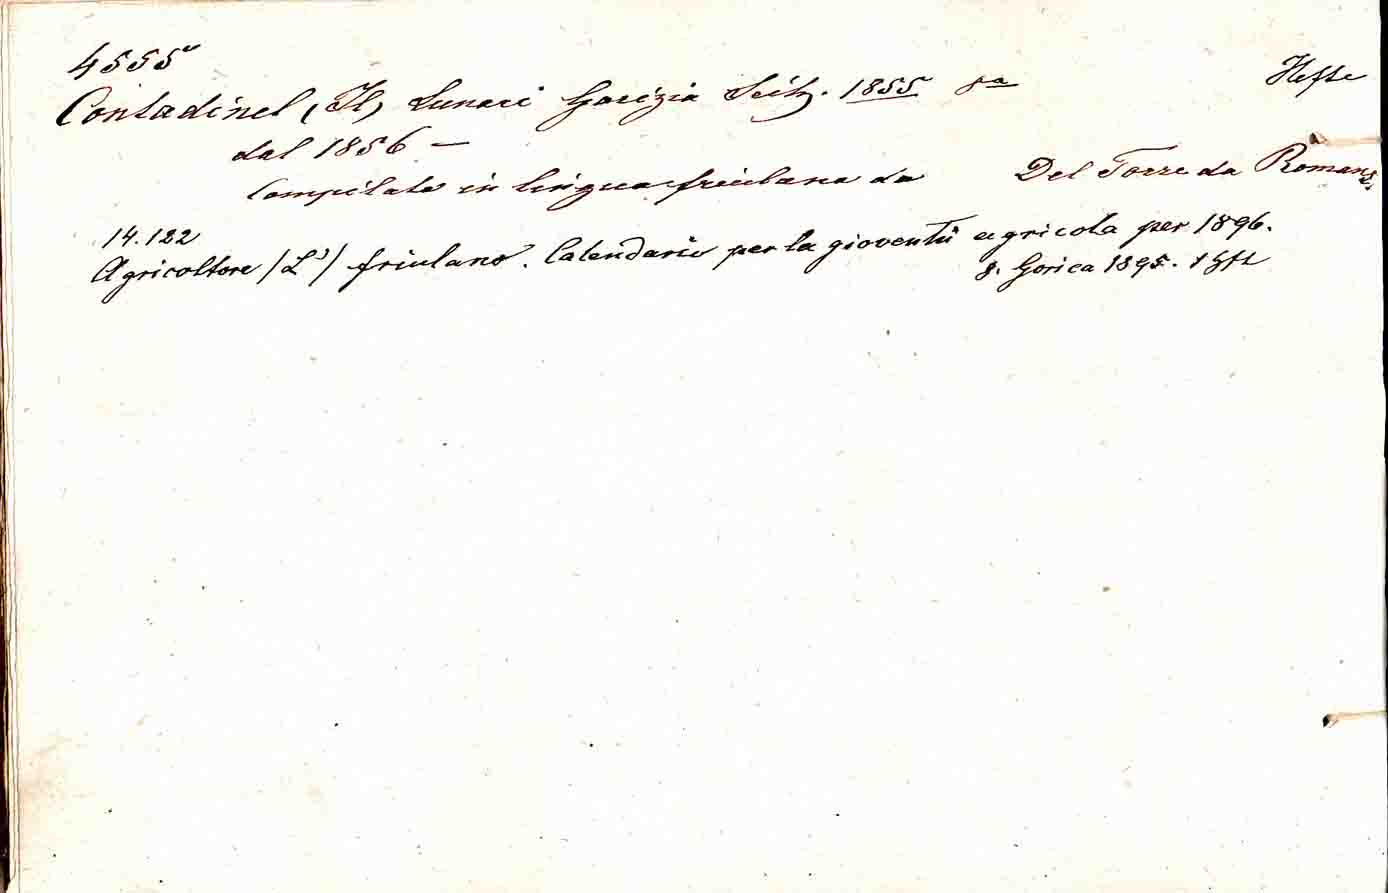 4555
Contadinel (Il) Lunari Gorizia Seitz. 1855 8° Hefte
dal 1856 —
Compilato in lingua friulana da Del Torre da Romans.
14.122
Agricoltore /L'/ friulano. Calendario per la gioventù agricola per 1896.
8. Gorica 1895. 1 Hft